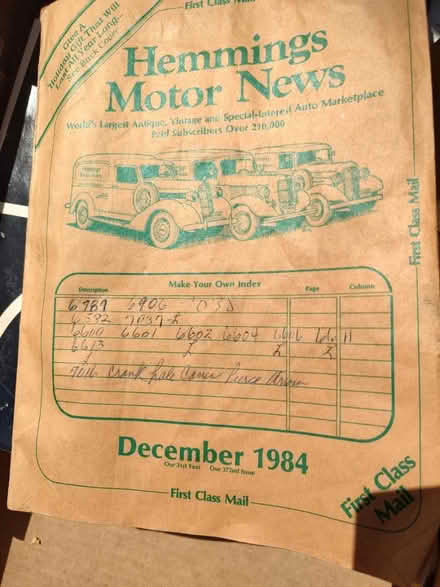 First Class Mail
Give A
Holiday Gift That Will
Last All Year Long...
See Back Cover
Hemmings
Motor News
World's Largest Antique, Vintage and Special-Interest Auto Marketplace
Paid Subscribers Over 210,000
First Class Mail
Make Your Own Index
Description Page Column
6789 6906
6592 7037-2
6600 6601 6602 6604 6606 11
6613 2 2 2
7016 Crank hole Cover Pierce Arrow
December 1984
Our 31st Year Our 372nd Issue
First Class Mail
First Class
Mail